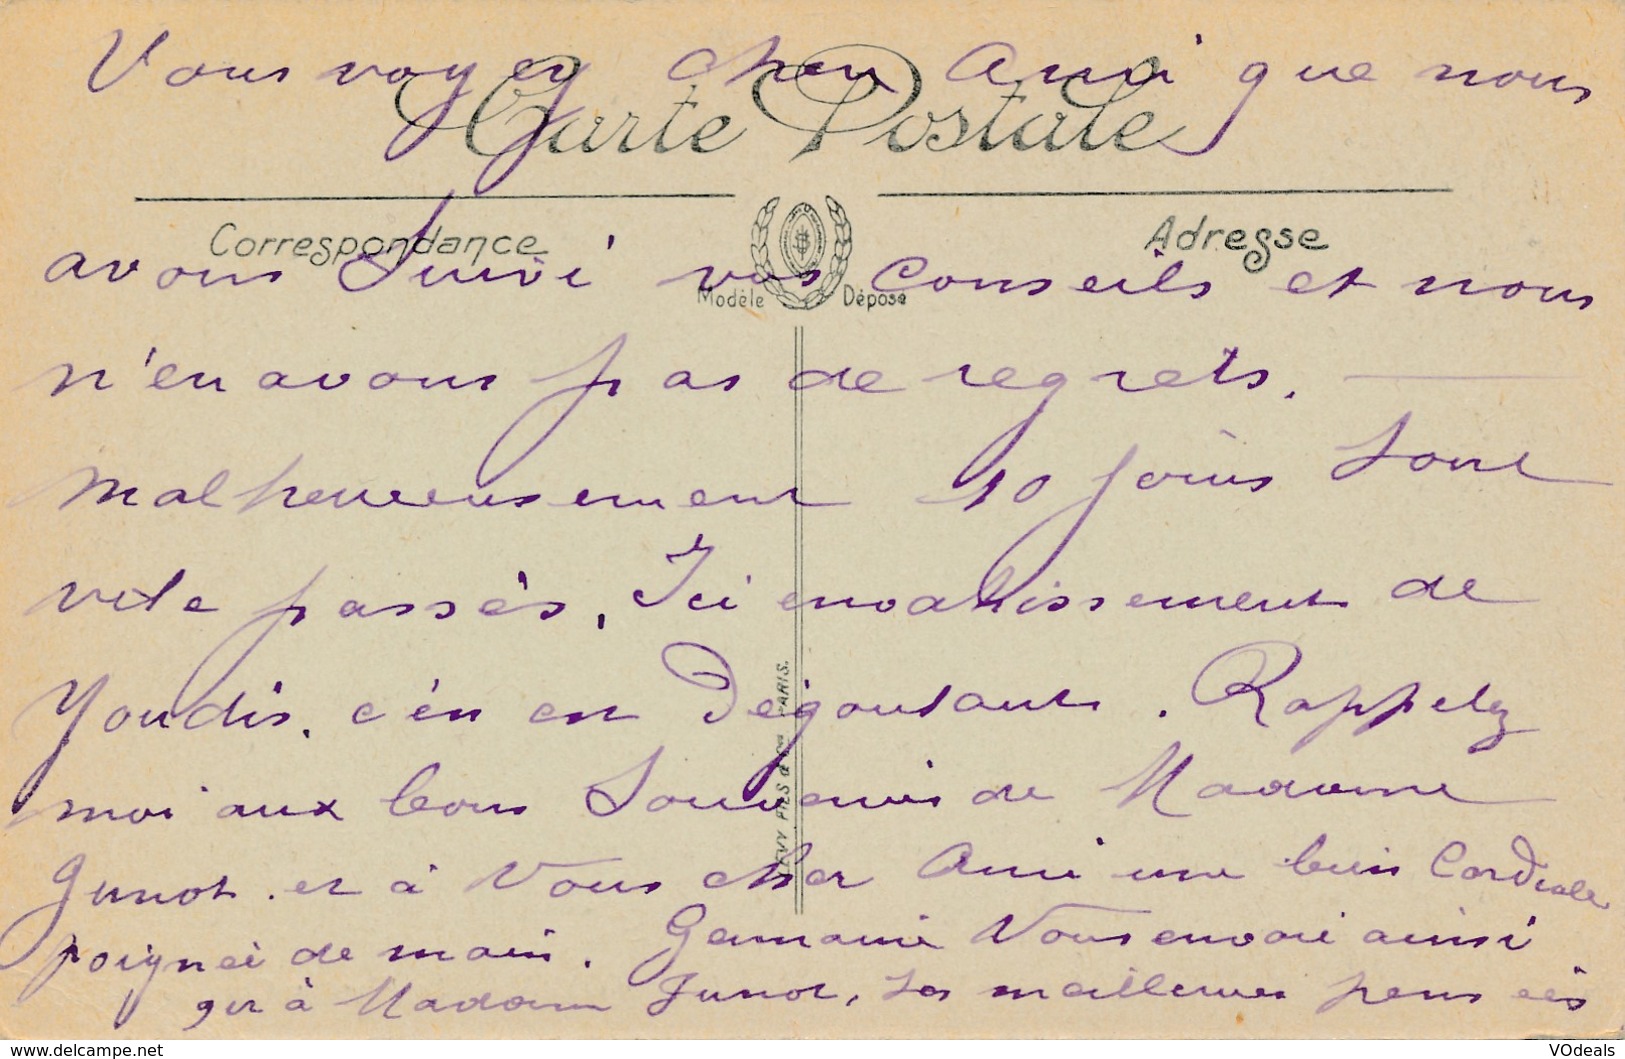 Vous voyez cher Ami que nous
Carte Postale
Correspondance
Adresse
avons Suivi vos conseils et nous
Modèle Déposé
n'en avons pas de regrets.
malheureusement 10 jours sont
vite passés, Ici envahissement de
Youdis. c'en est Dégoutant. Rappelez
LEVY FILS & Cie PARIS.
moi aux bons Souvenirs de Madame
Junot. et à Vous cher Ami une bien Cordiale
poignée de main. Germaine Vous envoie ainsi
qu à Madame Junot, Ses meilleures pensées
www.delcampe.net
VOdeals